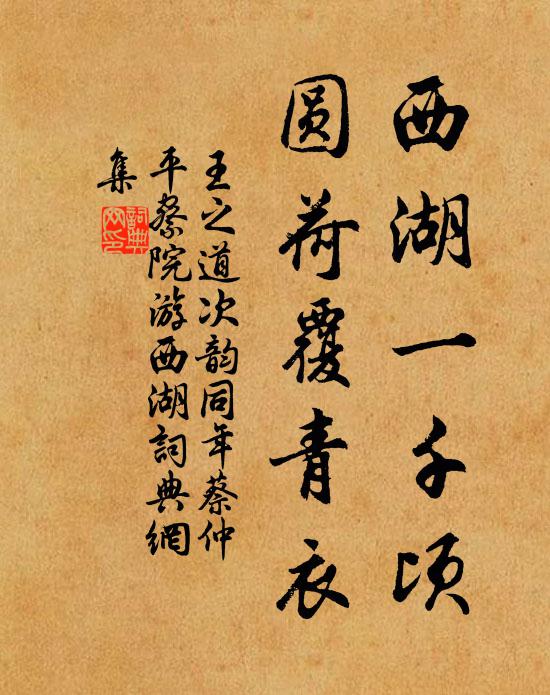 西湖一千顷
圆荷覆青衣
王之道次韵同年蔡仲
平察院游西湖詞典網
集
詞典
网印